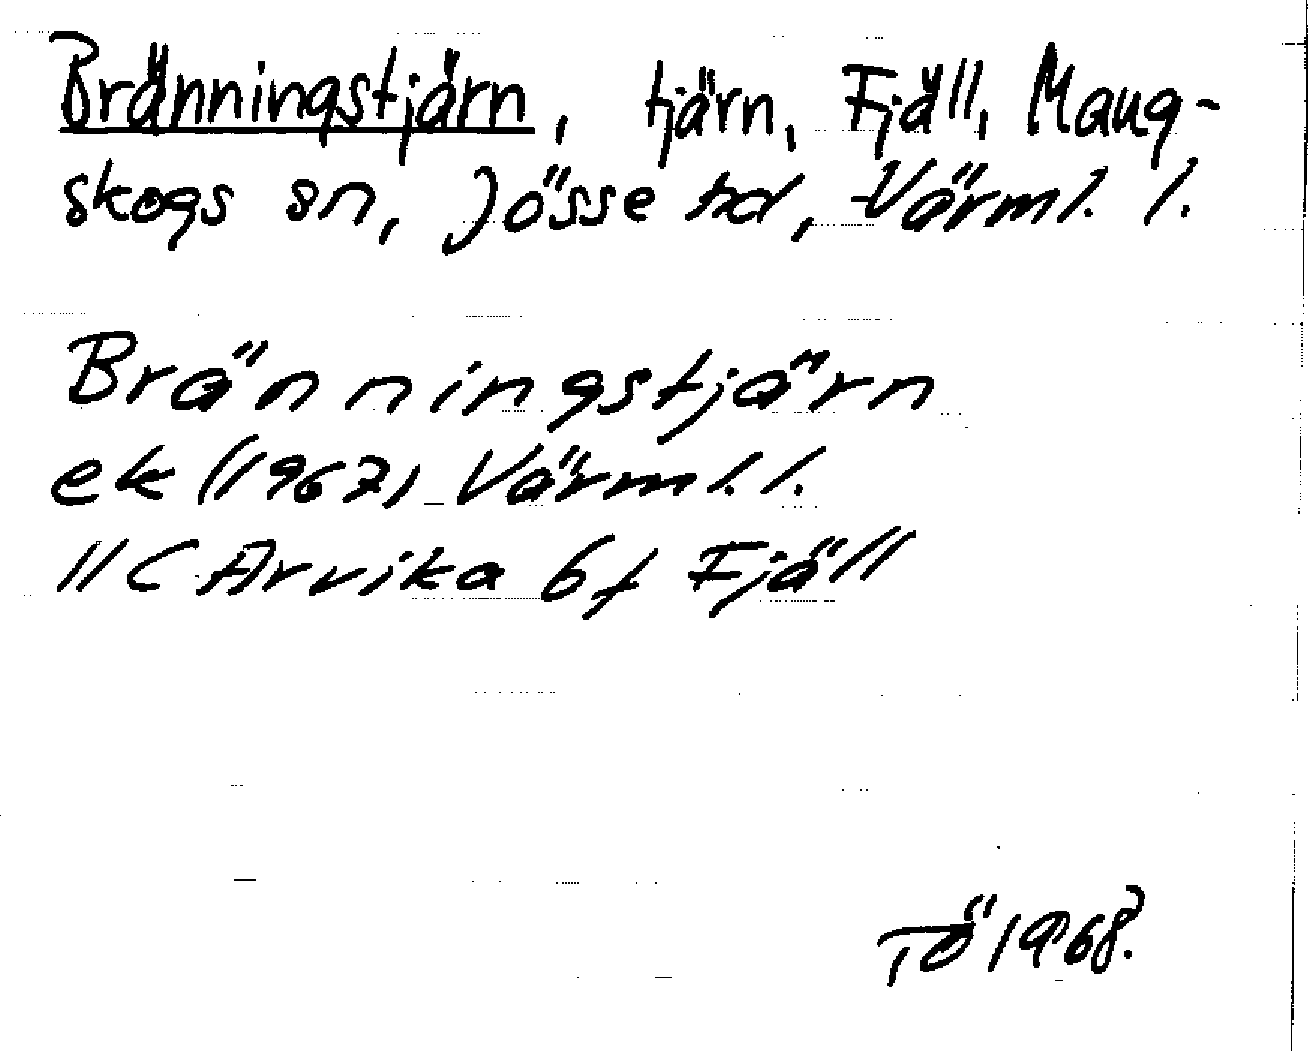 Bränningstjärn, tjärn, Fjäll, Mang-
skogs sn, Jösse hd, Värml. l.
Bränningstjärn
ek (1967) Värml. l.
11C Arvika 6f Fjäll
TÖ 1968.